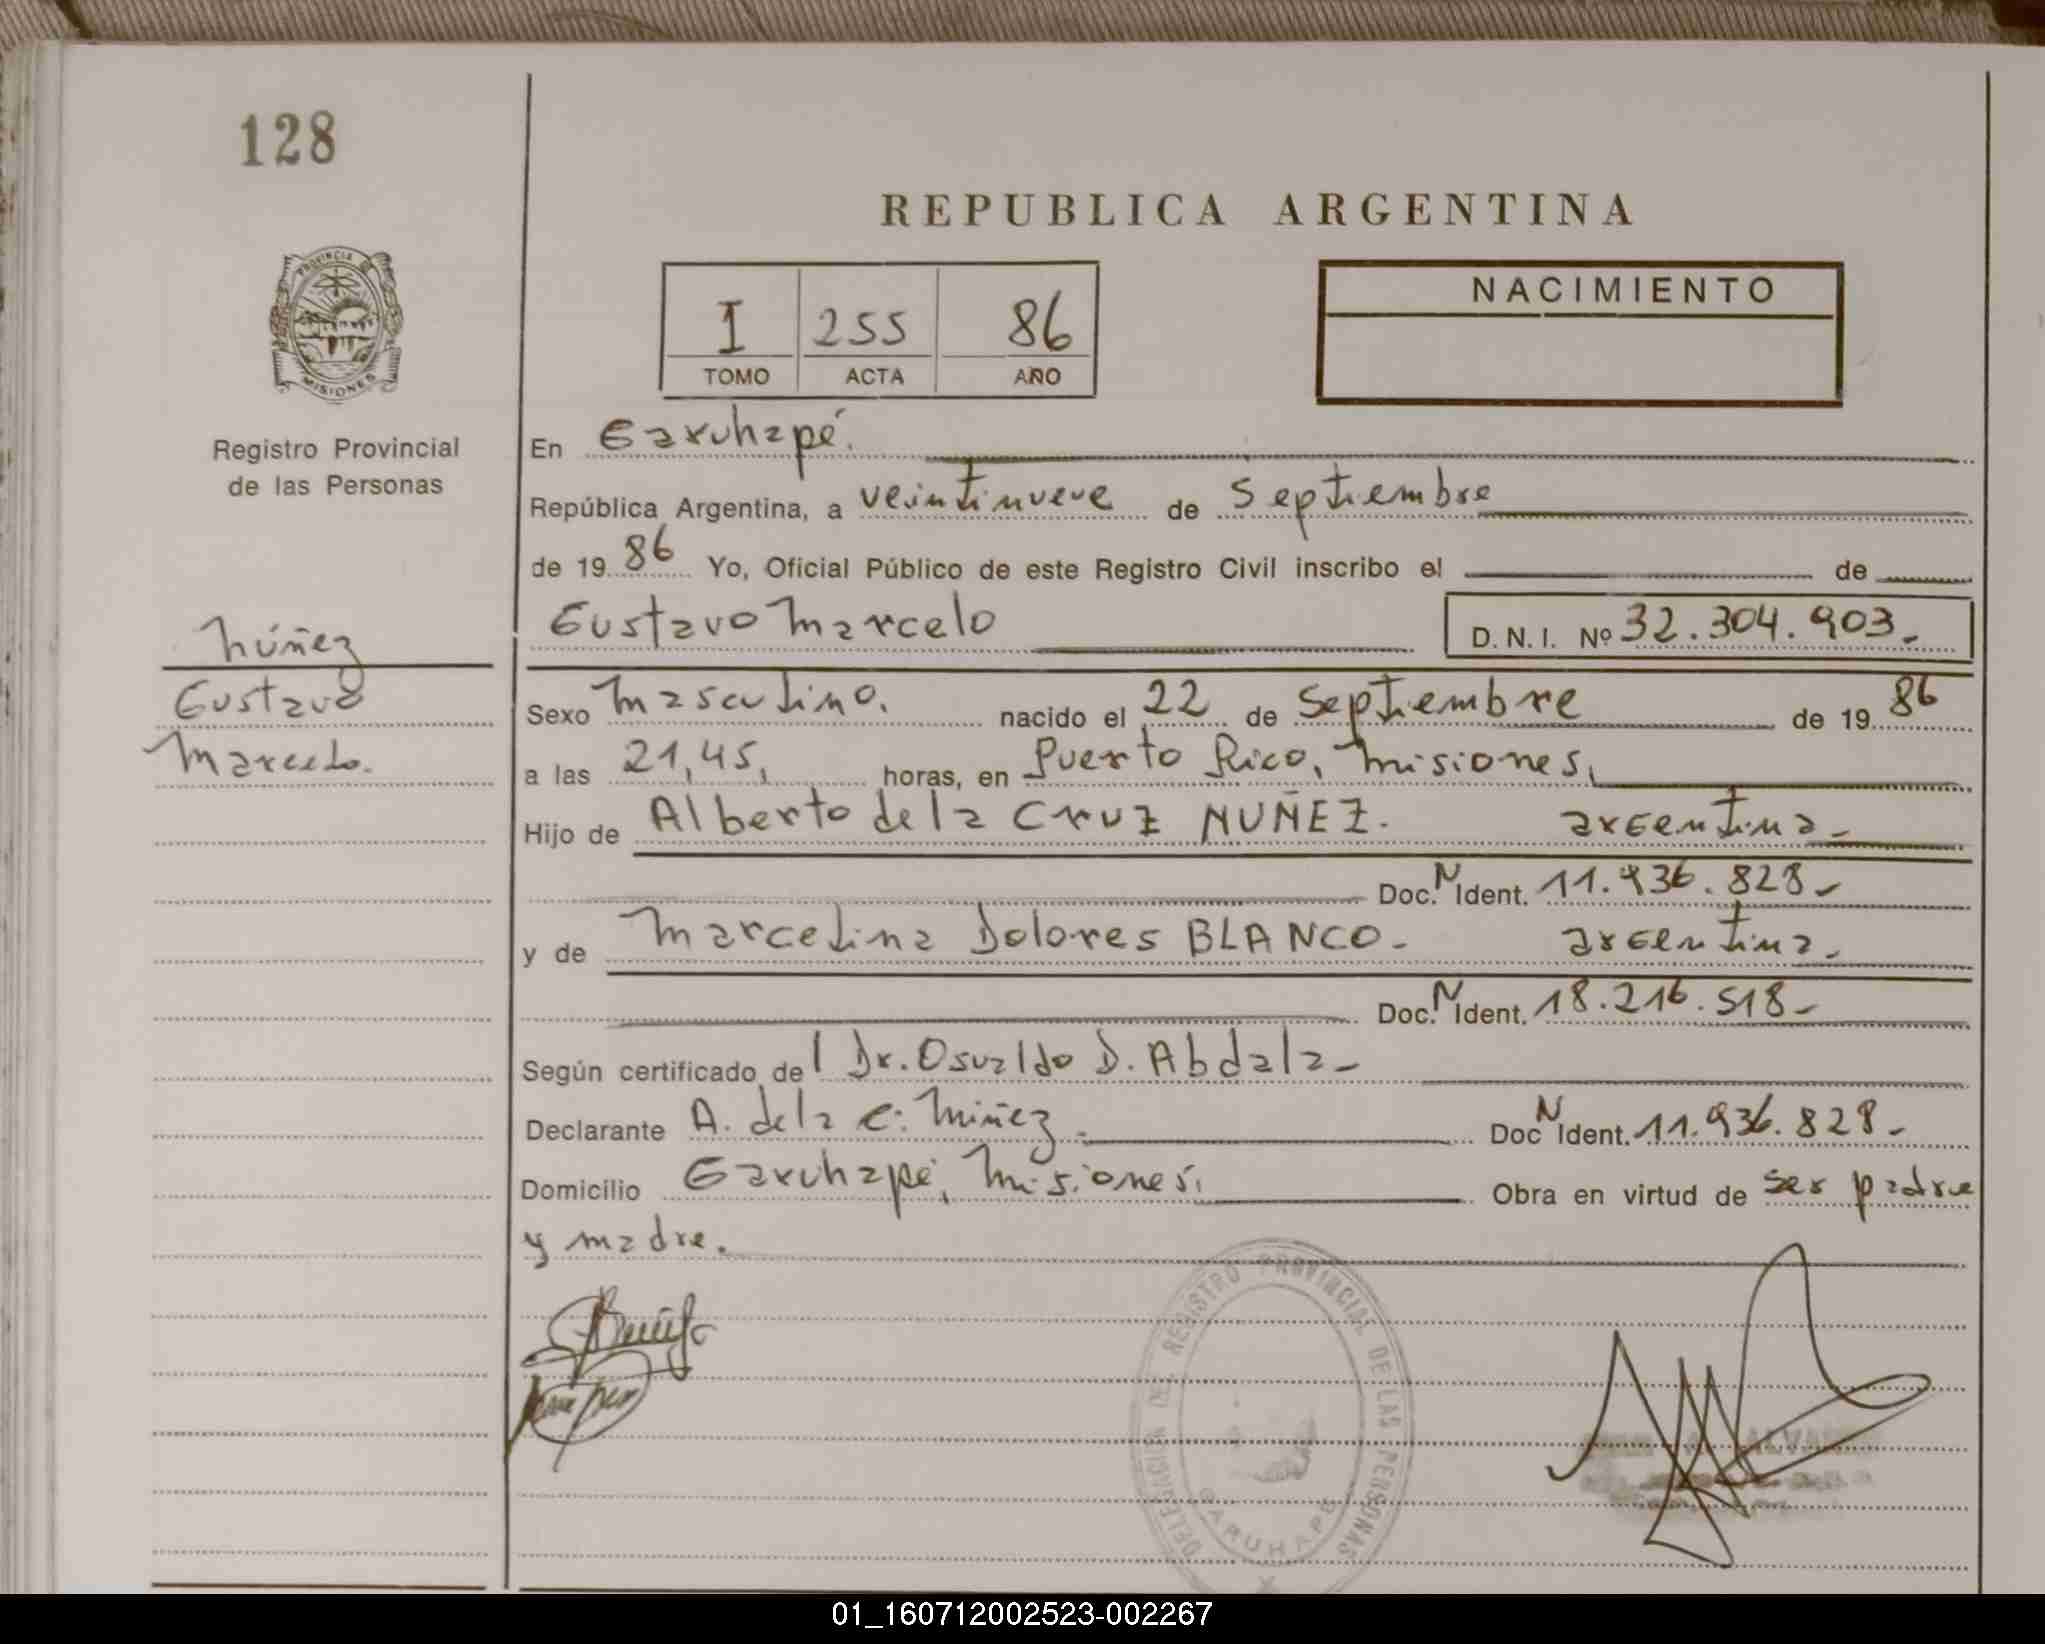 128
REPUBLICA ARGENTINA
PROVINCIA
MISIONES
I 255 86
TOMO ACTA AÑO
NACIMIENTO
Registro Provincial
de las Personas
En Garuhapé.
República Argentina, a veintinueve de Septiembre
de 19 86 Yo, Oficial Público de este Registro Civil inscribo el de
Gustavo Marcelo D. N. I. Nº 32.304.903.
Núñez
Gustavo
Marcelo.
Sexo Masculino. nacido el 22 de Septiembre de 19 86
a las 21,45, horas, en Puerto Rico, Misiones,
Hijo de Alberto de la Cruz NUÑEZ. argentina
Doc. N Ident. 11.936.828
y de Marcelina Dolores BLANCO argentina
Doc. N Ident. 18.216.518
Según certificado de l Dr. Osvaldo D. Abdala
Declarante A. de la C. Núñez Doc N Ident. 11.936.828
Domicilio Garuhapé, Misiones, Obra en virtud de ser padre
y madre.
DELEGACION DEL REGISTRO PROVINCIAL DE LAS PERSONAS
GARUHAPE
01_160712002523-002267